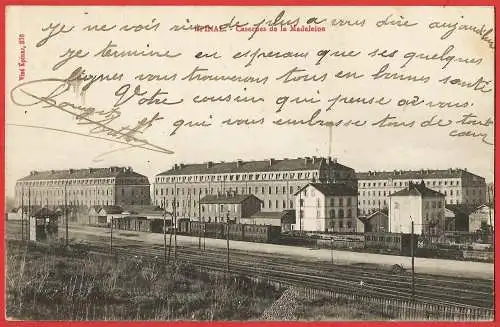 je ne vois rien de plus a vous dire aujourd'hui
EPINAL. - Casernes de la Madeleine
je termine en esperant que ses quelques
lignes vous trouverons tous en bonne santé
Votre cousin qui pense a vous.
et qui vous embrasse tous de tout
coeur
Visé Epinal, 376